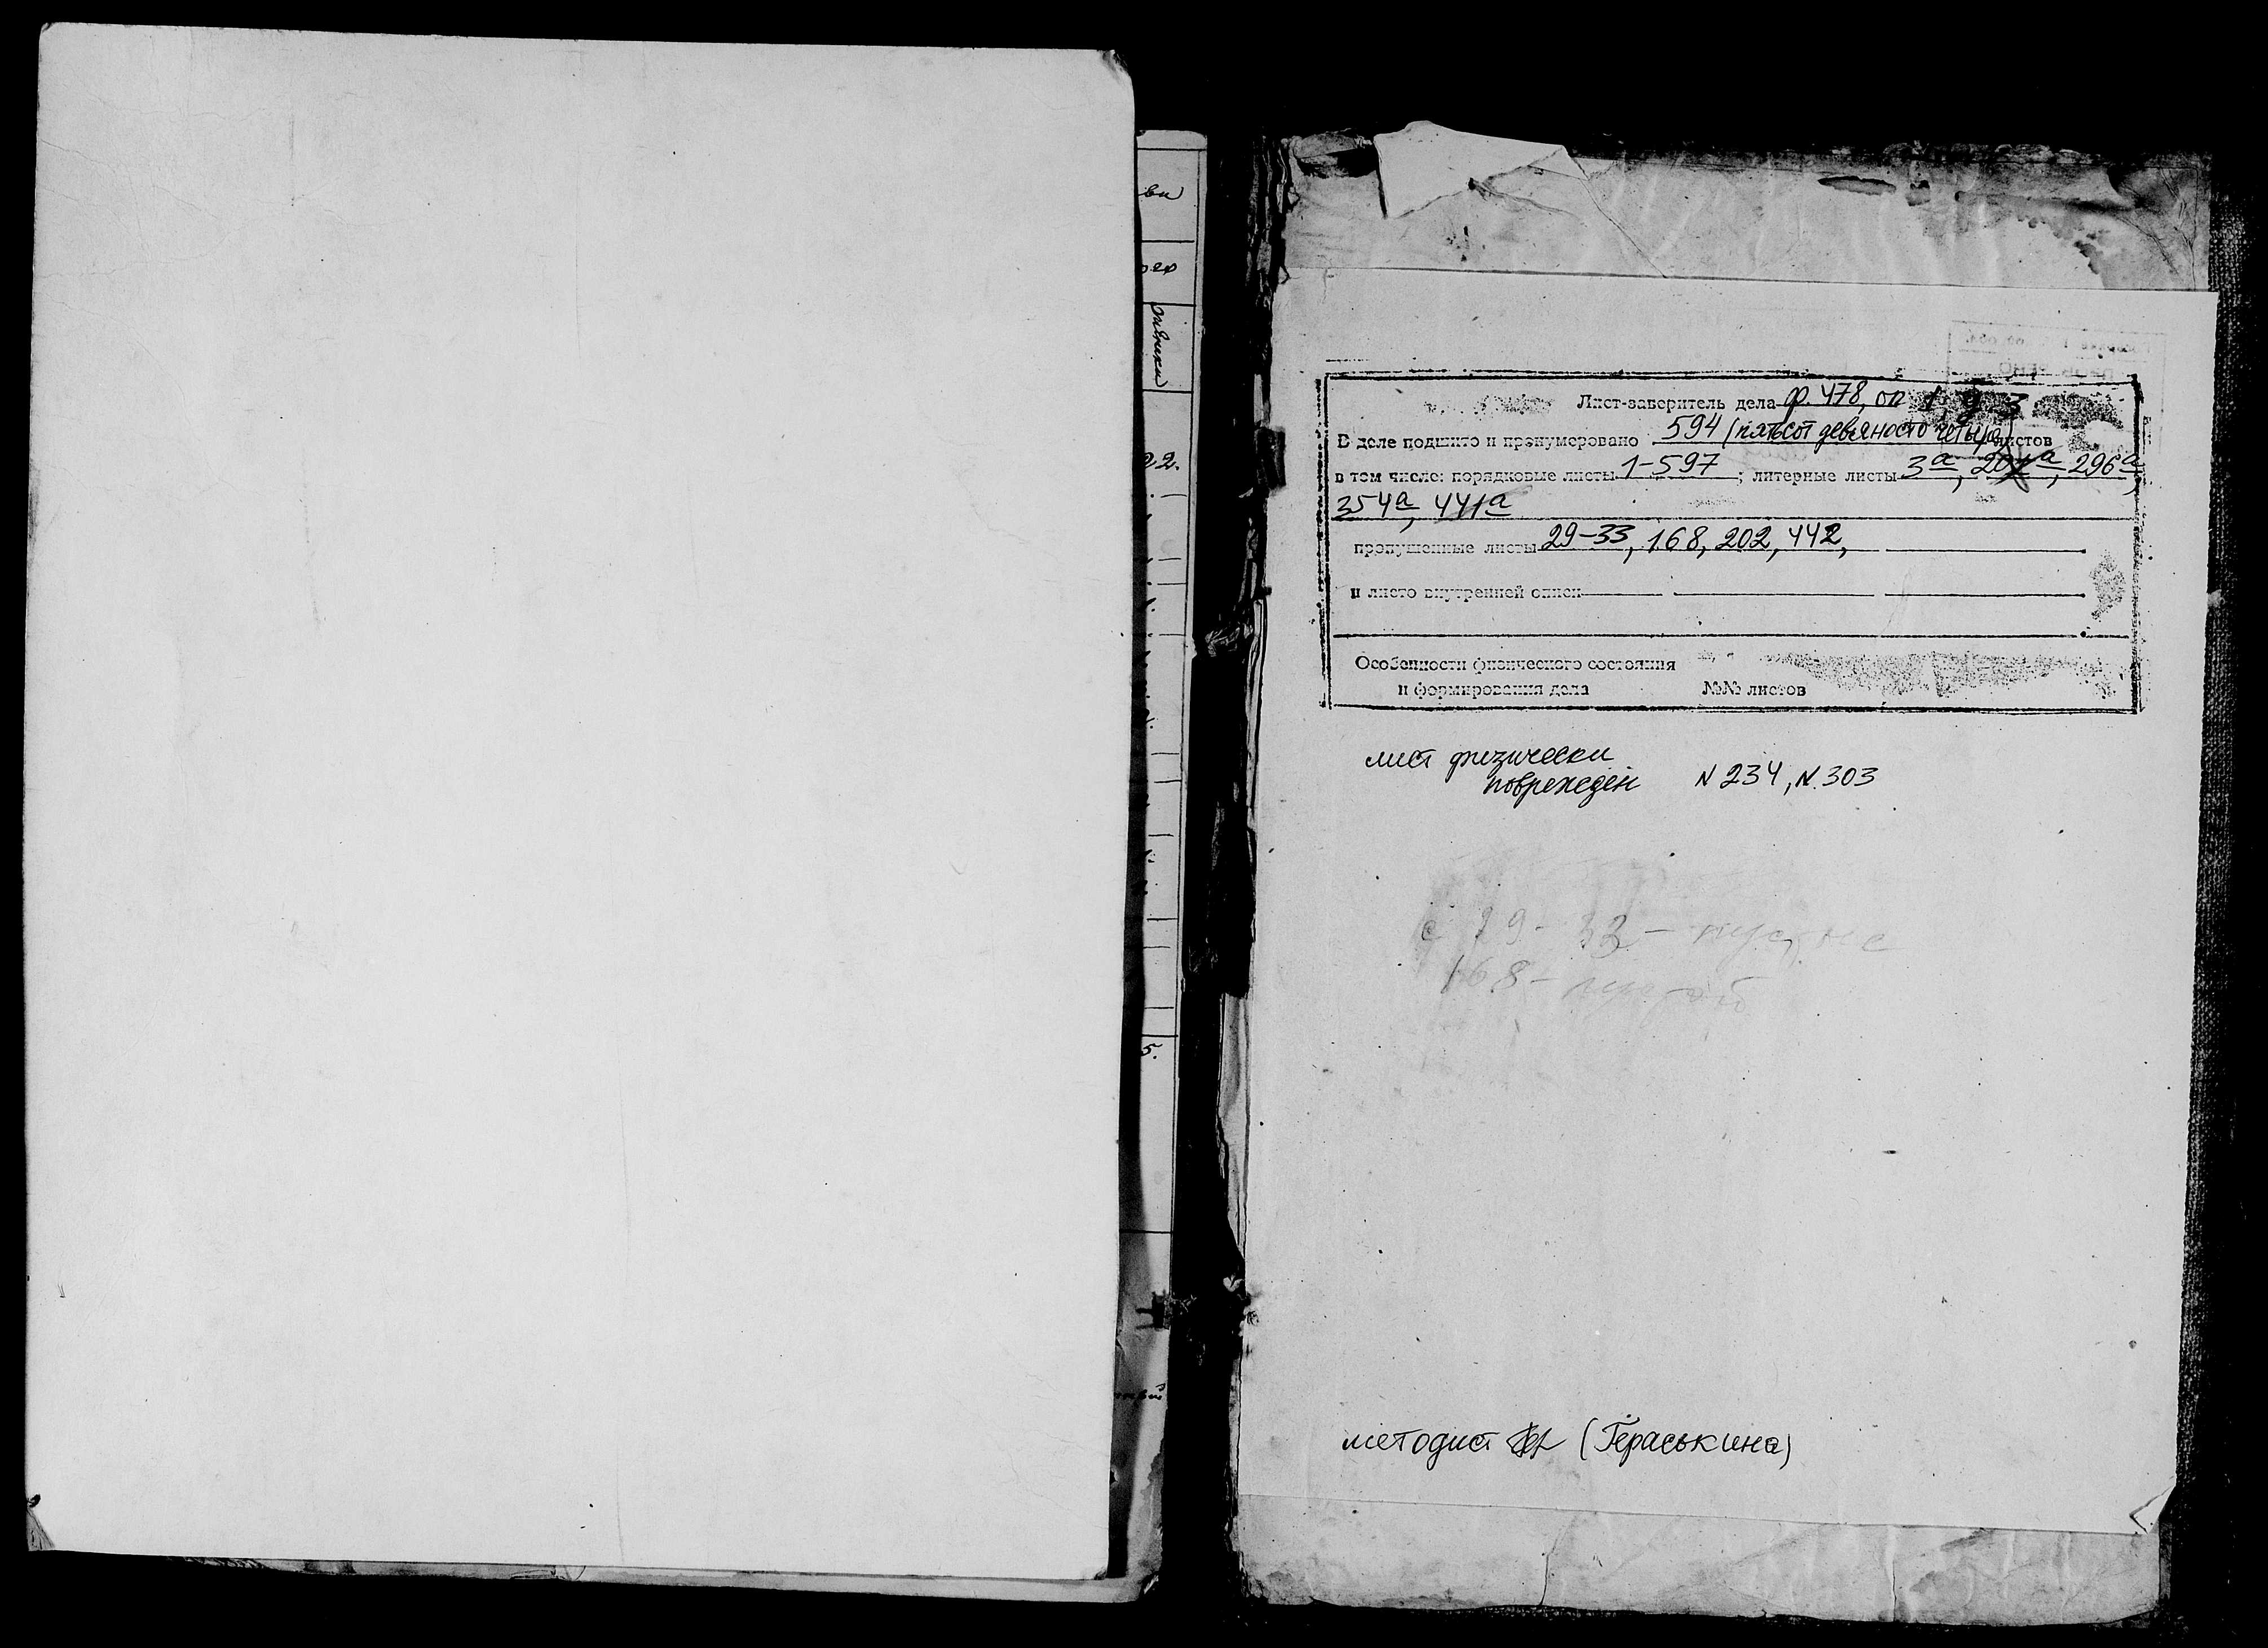 ви
2.
5.
Лист-заверитель дела ф. 478, оп 1 д 3
В деле подшито и пронумеровано 594 (пятьсот девяносто четыре) листов
в том числе: порядковые листы 1-597; литерные листы 3а, 201а, 296а,
354а, 441а
пропущенные листы 29-33, 168, 202, 442,
и листо внутренней описи
Особенности физического состояния
и формирования дела №№ листов
лист физически
поврежден N 234, N. 303
с 29-33 - пустые
168 -
методист (Гераськина)